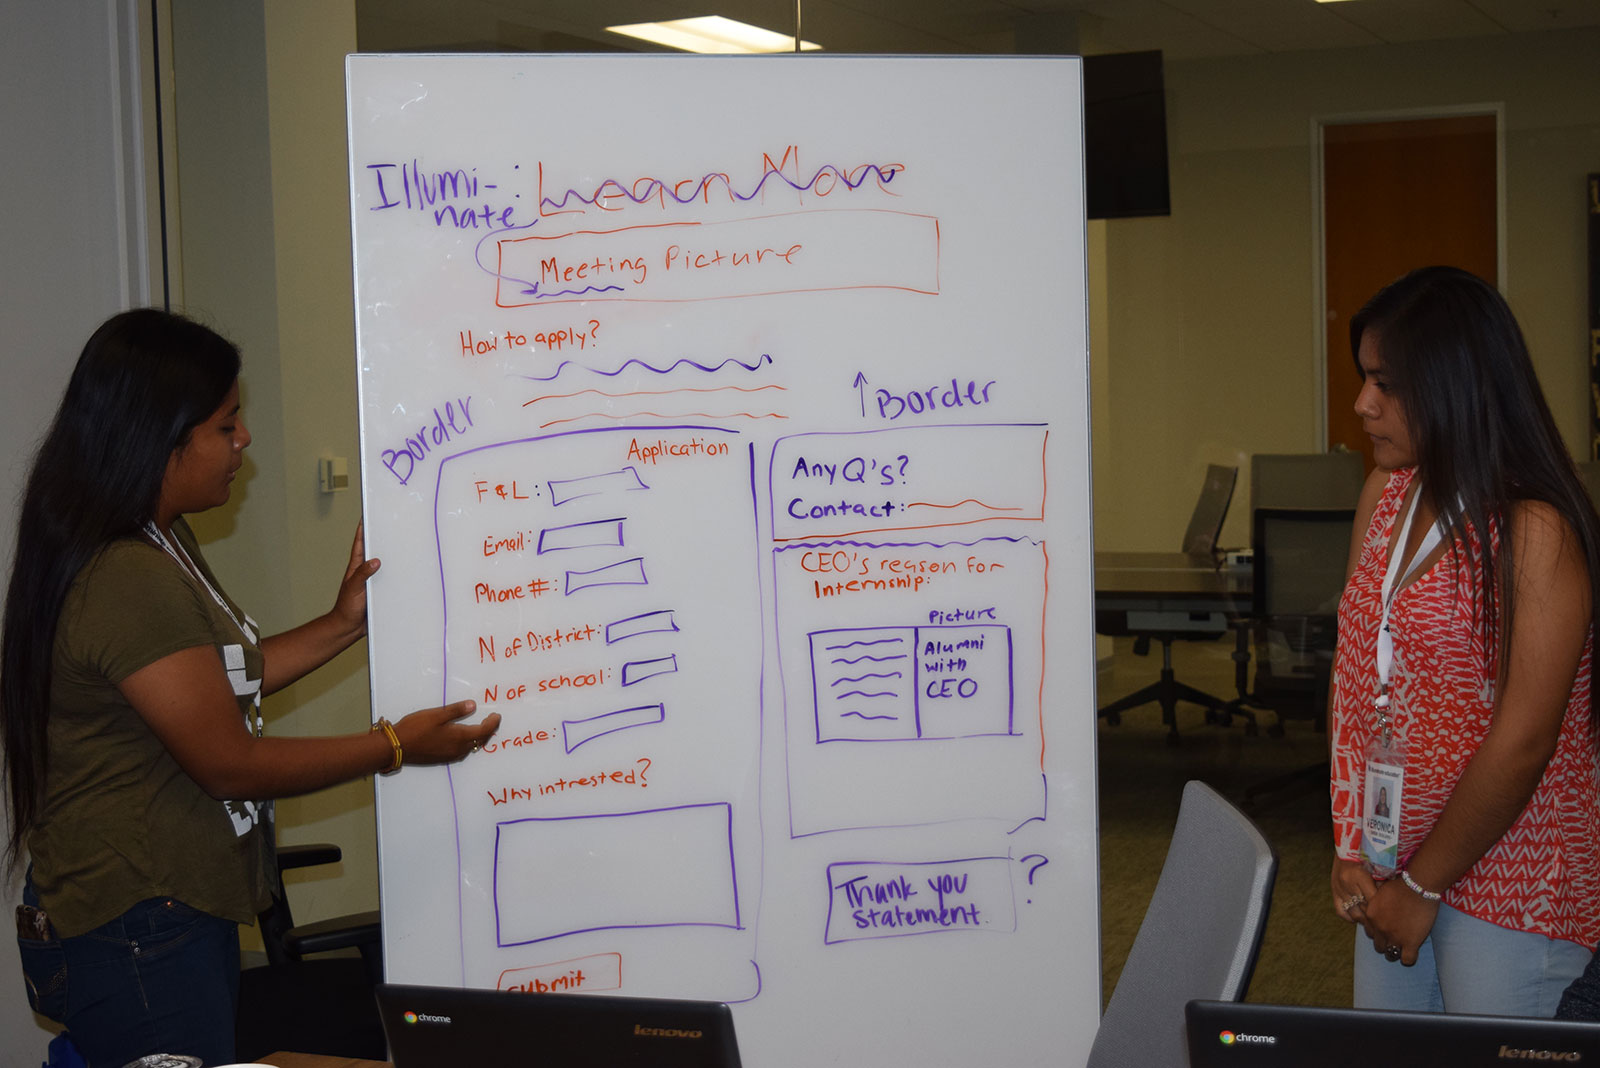 Illumi-
nate
: Learn More
Meeting Picture
How to apply?
Border
Application
F & L:
Email:
Phone #:
N of District:
N of school:
Grade:
Why intrested?
submit
↑ Border
Any Q's?
Contact:
CEO's reason for
Internship:
Picture
Alumni
with
CEO
Thank you
statement.
?
chrome
lenovo
VERONICA
chrome
lenovo